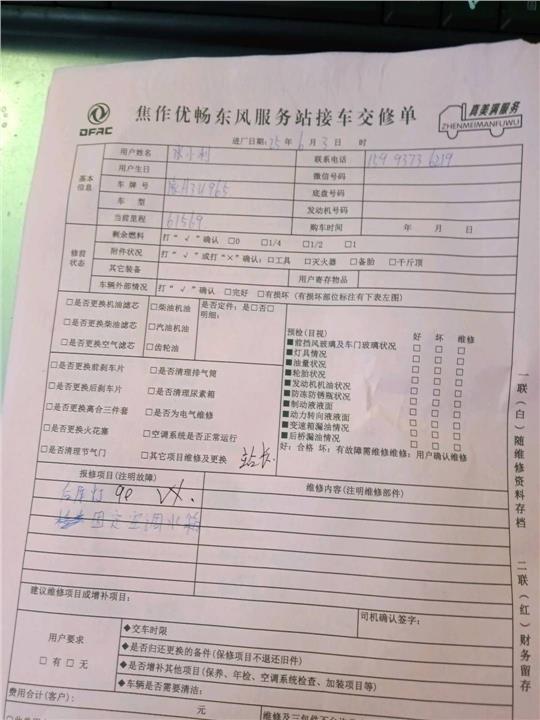 DFAC
焦作优畅东风服务站接车交修单
真美满服务
ZHENMEIMANFUWU
进厂日期:25年6月3日 时
基本信息
用户姓名
联系电话 159 9373 6219
用户生日
微信号码
车牌号
底盘号码
车型
发动机号码
当前里程 61569
购车时间 年 月 日
修前状态
剩余燃料 打“√”确认 □0 □1/4 □1/2 □1
附件状况 打“√”或打“×”确认:□工具 □灭火器 □备胎 □千斤顶
其它装备
用户寄存物品
车辆外部情况 打“√”确认 □完好 □有损坏(有损坏部位标注有下表左图)
□是否更换机油滤芯 □柴油机油
□是否更换柴油滤芯 □汽油机油
□是否更换空气滤芯 □齿轮油
是否定件:是□否□
明细:
□是否更换前刹车片 □是否清理排气筒
□是否更换后刹车片 □是否清理尿素箱
□是否更换离合三件套 □是否为电气维修
□是否更换火花塞 □空调系统是否正常运行
□是否清理节气门 □其它项目维修及更换 站长
预检(目视) 好 坏 维修
■前挡风玻璃及车门玻璃状况 □ □ □
■灯具情况 □ □ □
■油量状况 □ □ □
■轮胎状况 □ □ □
■发动机机油状况 □ □ □
■防冻防锈瓶状况 □ □ □
■制动液液面 □ □ □
■动力转向液液面 □ □ □
■变速箱漏油情况 □ □ □
■后桥漏油情况 □ □ □
好:合格 坏:有故障需维修维修:用户确认维修
报修项目(注明故障)
维修内容(注明维修部件)
固定空调水箱
建议维修项目或增补项目:
司机确认签字:
用户要求
□有 □无
◆交车时限
◆是否归还更换的备件(保修项目不退还旧件)
◆是否增补其他项目(保养、年检、空调系统检查、加装项目等)
◆车辆是否需要清洁:
费用合计(客户): 元
一联(白)随维修资料存档 二联(红)财务留存